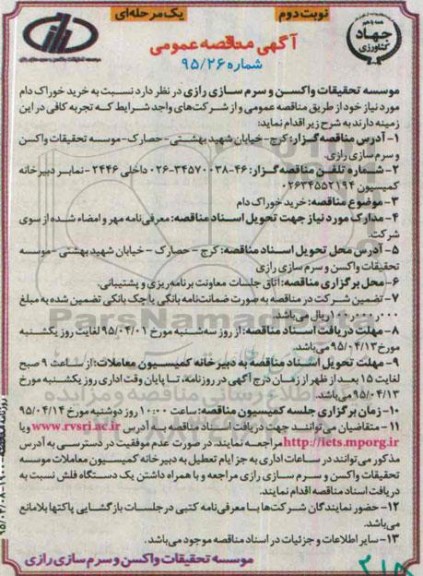 نوبت دوم
یک مرحله‌ای
همه با هم
جهاد
کشاورزی
آگهی مناقصه عمومی
شماره ۹۵/۲۶
موسسه تحقیقات واکسن و سرم سازی رازی در نظر دارد نسبت به خرید خوراک دام
مورد نیاز خود از طریق مناقصه عمومی و از شرکت‌های واجد شرایط که تجربه کافی در این
زمینه دارند به شرح زیر اقدام نماید:
۱- آدرس مناقصه گزار: کرج- خیابان شهید بهشتی - حصارک- موسسه تحقیقات واکسن
و سرم سازی رازی.
۲- شماره تلفن مناقصه گزار: ۴۶-۰۲۶-۳۴۵۷۰۰۳۸ داخلی ۲۴۴۶ - نمابر دبیرخانه
کمیسیون ۰۲۶۳۴۵۵۲۱۹۴
۳- موضوع مناقصه: خرید خوراک دام
۴- مدارک مورد نیاز جهت تحویل اسناد مناقصه: معرفی‌نامه مهر و امضاء شده از سوی
شرکت.
۵- آدرس محل تحویل اسناد مناقصه: کرج - حصارک - خیابان شهید بهشتی - موسسه
تحقیقات واکسن و سرم سازی رازی
۶- محل برگزاری مناقصه: اتاق جلسات معاونت برنامه‌ریزی و پشتیبانی.
۷- تضمین شرکت در مناقصه به صورت ضمانت‌نامه بانکی یا چک بانکی تضمین شده به مبلغ
ریال می‌باشد.
۸- مهلت دریافت اسناد مناقصه: از روز سه‌شنبه مورخ ۹۵/۰۴/۰۱ لغایت روز یکشنبه
مورخ ۹۵/۰۴/۱۳ می‌باشد.
۹- مهلت تحویل اسناد مناقصه به دبیرخانه کمیسیون معاملات: از ساعت ۹ صبح
لغایت ۱۵ بعد از ظهر از زمان درج آگهی در روزنامه، تا پایان وقت اداری روز یکشنبه مورخ
۹۵/۰۴/۱۳ می‌باشد.
۱۰- زمان برگزاری جلسه کمیسیون مناقصه: ساعت ۱۰:۰۰ روز دوشنبه مورخ ۹۵/۰۴/۱۴
۱۱- متقاضیان می‌توانند جهت دریافت اسناد مناقصه به آدرس www.rvsri.ac.ir و یا
http://iets.mporg.ir مراجعه نمایند. در صورت عدم موفقیت در دسترسی به آدرس
مذکور می‌توانند در ساعات اداری به جز ایام تعطیل به دبیرخانه کمیسیون معاملات موسسه
تحقیقات واکسن و سرم سازی رازی مراجعه و با همراه داشتن یک دستگاه فلش نسبت به
دریافت اسناد مناقصه اقدام نمایند.
۱۲- حضور نمایندگان شرکت‌ها با معرفی‌نامه کتبی در جلسات بازگشایی پاکتها بلامانع
می‌باشد.
۱۳- سایر اطلاعات و جزئیات در اسناد مناقصه موجود می‌باشد.
موسسه تحقیقات واکسن و سرم سازی رازی